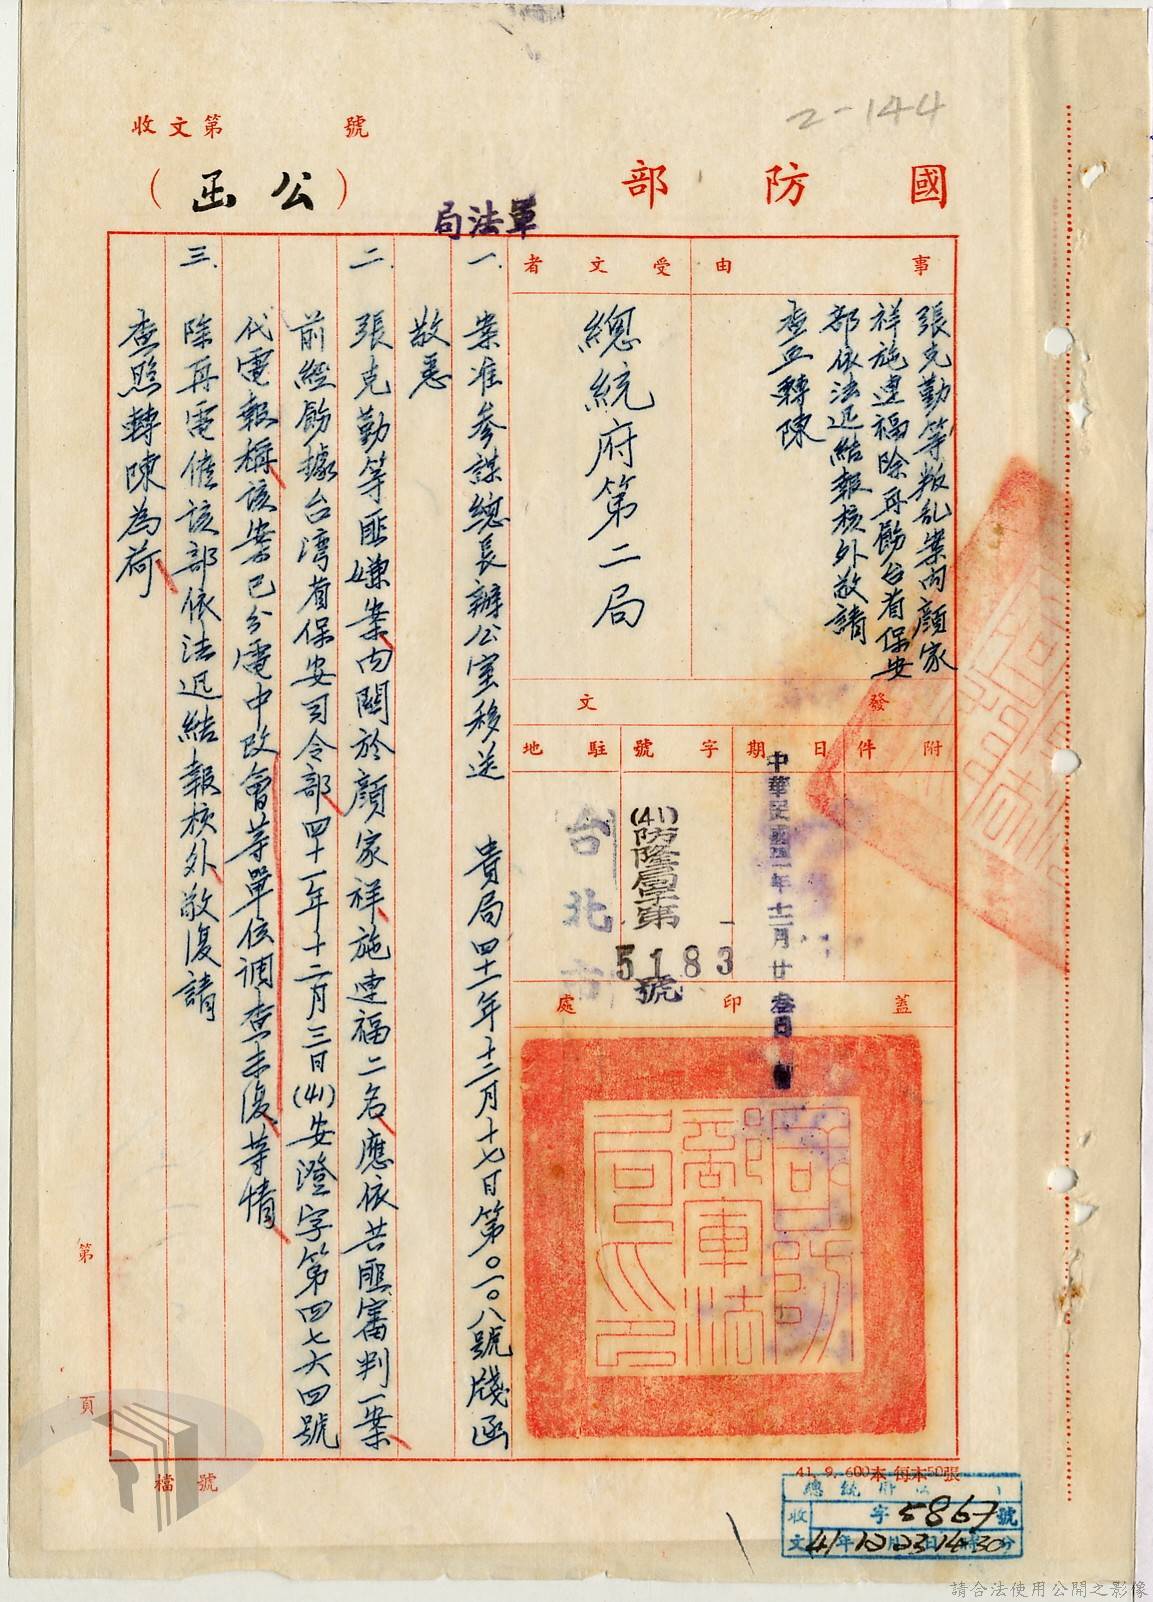 2-144
國防部
軍法局
(公函)
收文第 號
事由
張克勤等叛乱案內顏家
祥施連福除再飭台省保安
部依法迅結報核外敬請
查照轉陳
受文者
總統府第二局
發文
附件
日期
中華民國四一年十二月廿叁日
字號
(41)防隆局字第5183號
駐地
台北市
蓋印處
國防部軍法局印
一. 案准參謀總長辦公室移送 貴局四十一年十二月十七日第〇一〇八號牋函
敬悉
二. 張克勤等匪嫌案內關於顏家祥施連福二名應依共匪審判一案
前經飭據台湾省保安司令部四十一年十二月三日(41)安澄字第四七六四號
代電報稱該案已分電中改會等單位調查未復等情
三. 除再電催該部依法迅結報核外敬復請
查照轉陳為荷
第 頁
檔號
41. 9. 600本 每本50張
總統府
收文 字5867號
41年12月23日14時30分
請合法使用公開之影像